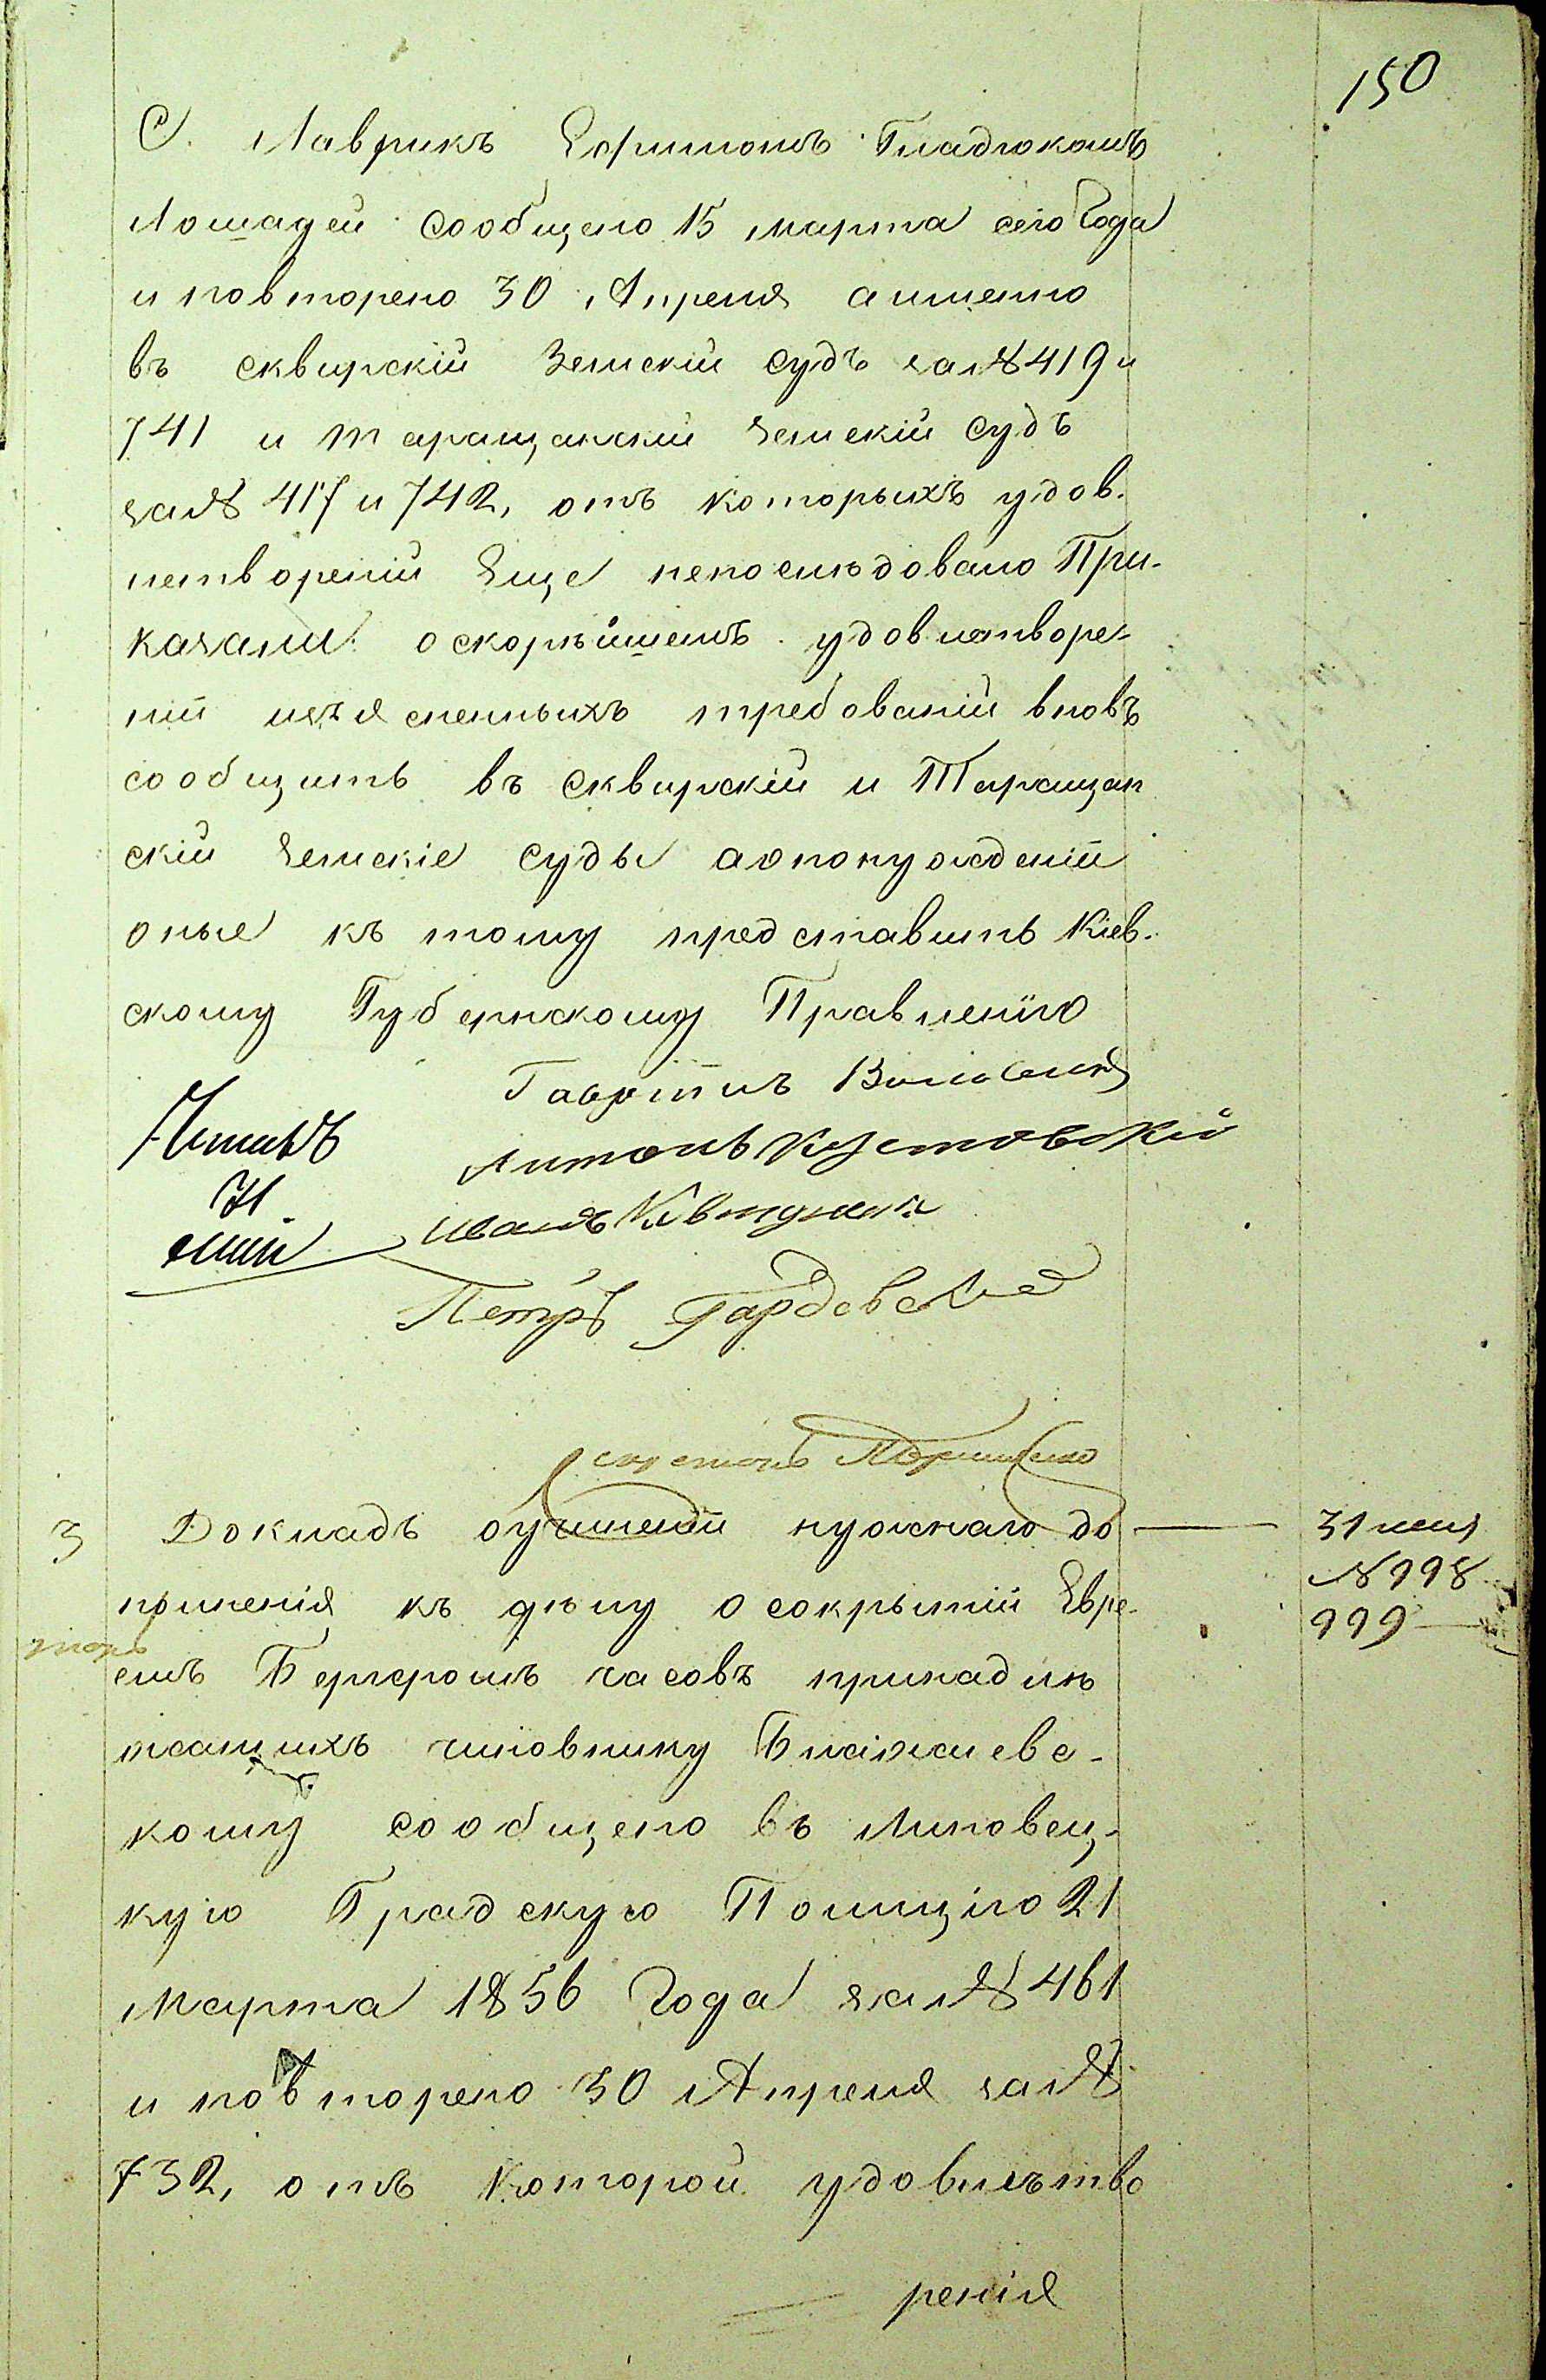 150
С. Лаврикъ Ефимомъ Гладюкомъ
Лошадей сообщено 15 марта сего Года
и повторено 30 Апреля аименно
въ сквирскій Земскій судъ за№ 419 и
741 и таращанскій земскій судъ
за№ 417 и 742, отъ которыхъ удов.
летвореній Еще непослѣдовало При-
казали: оскорѣйшемъ удовлетворе-
ніи изъясненныхъ требованій вновь
сообщить въ сквирскій и Таращан
скій земскіе суды аопонужденіи
оные къ тому представить Кіев-
скому Губернскому Правленію
Антонъ Кустовскій
Иванъ
Петръ Гардовскій
3 Докладъ оучиненіи нужнаго до 31 мая
полненія къ дѣлу осокрытіи Евре- №998
емъ Бергеромъ часовъ принадлѣ 999
жащихъ чиновнику
кому сообщено въ Липовец-
кую Градскую Полицію 21
Марта 1856 Года за№ 461
и повторено 30 Апреля за№
732, отъ которой удовлетво
ренія